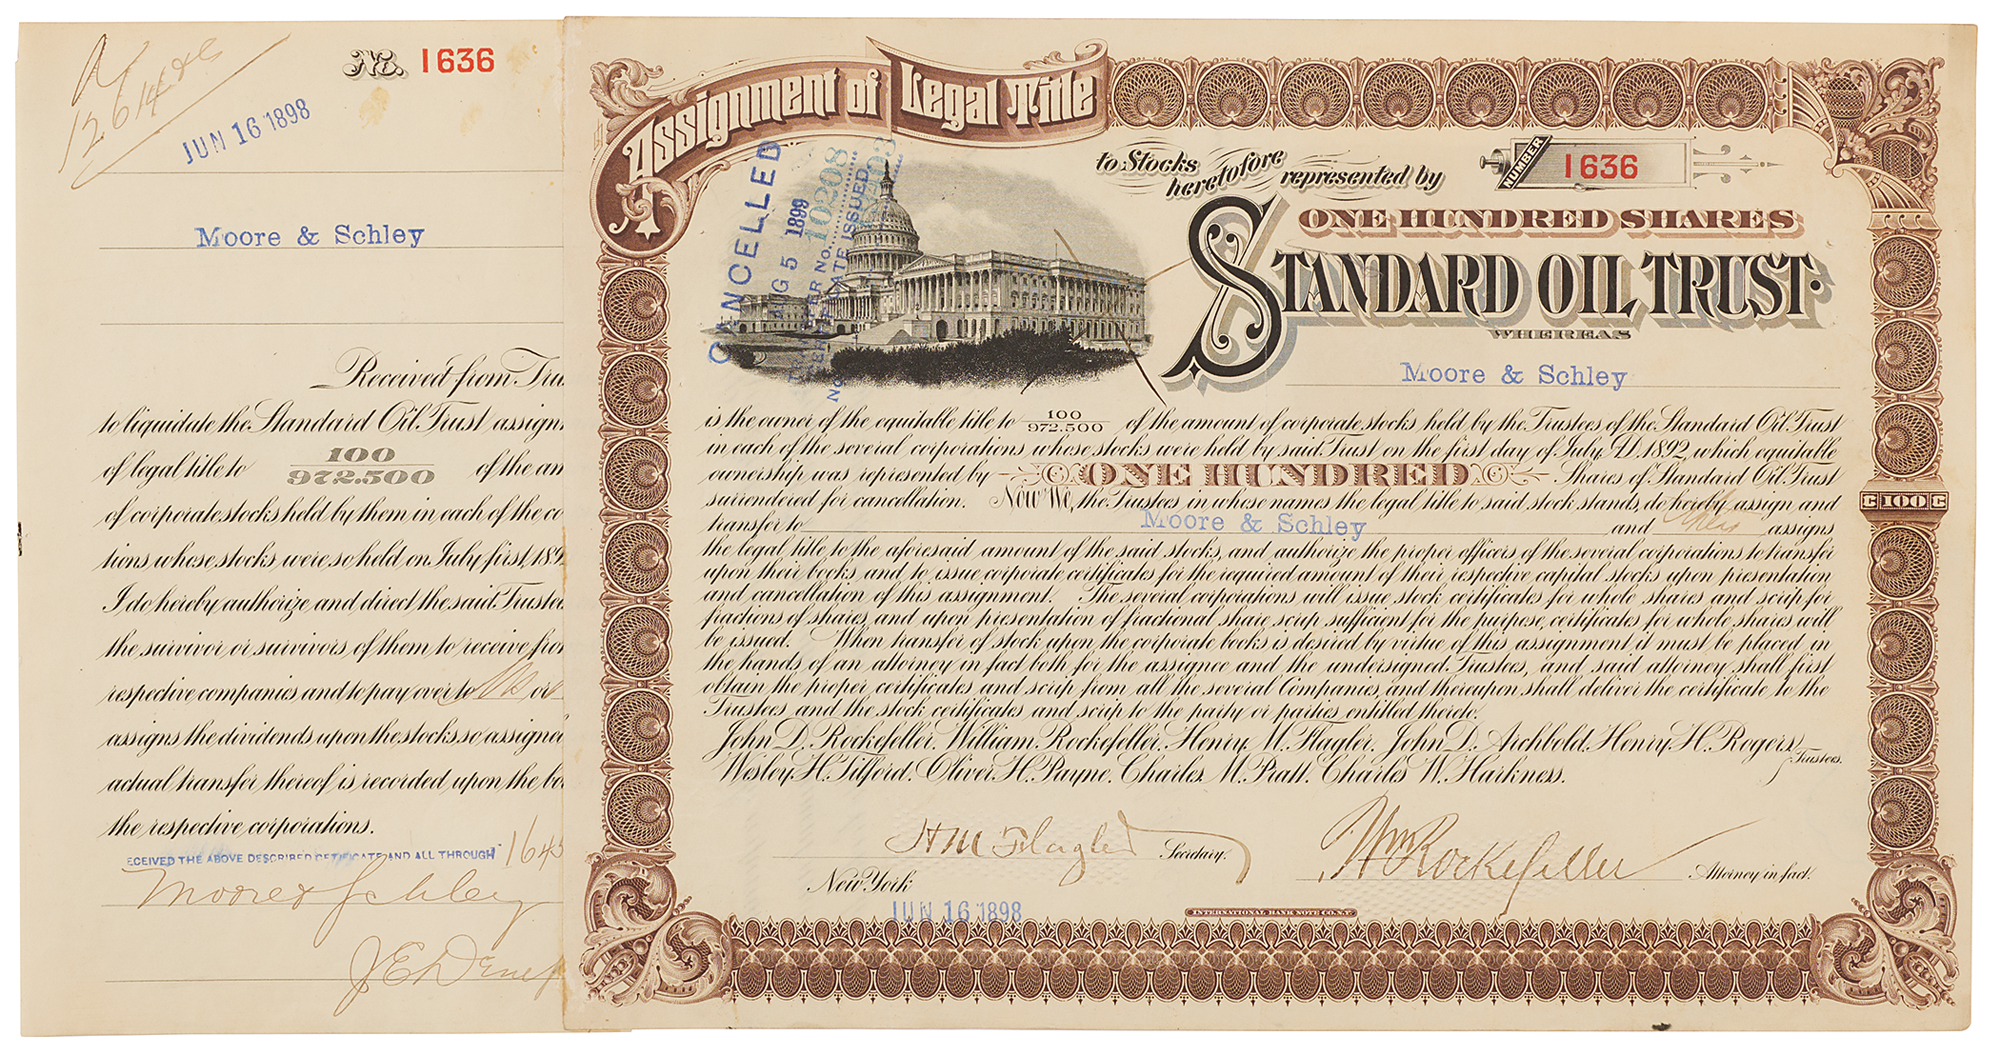 No. 1636
JUN 16 1898
Moore & Schley
Received from Tru
to liquidate the Standard Oil Trust assign
of legal title to 100/972.500 of the am
of corporate stocks held by them in each of the co
tions whose stocks were so held on July first, 189
I do hereby authorize and direct the said Trustee
the survivor or survivors of them to receive from
respective companies and to pay over to us or
assigns the dividends upon the stocks, so assigned
actual transfer thereof is recorded upon the bo
the respective corporations.
ECEIVED THE ABOVE DESCRIBED CETIFICATE AND ALL THROUGH 1645
Moore & Schley
Assignment of Legal Title
to Stocks heretofore represented by
NUMBER 1636
ONE HUNDRED SHARES
STANDARD OIL TRUST.
WHEREAS
Moore & Schley
is the owner of the equitable title to 100/972.500 of the amount of corporate stocks held by the Trustees of the Standard Oil Trust
in each of the several corporations whose stocks were held by said Trust on the first day of July A.D. 1892, which equitable
ownership was represented by ONE HUNDRED Shares of Standard Oil Trust
surrendered for cancellation. Now We, the Trustees in whose names the legal title to said stock stands, do hereby assign and
transfer to Moore & Schley and their assigns,
the legal title to the aforesaid amount of the said stocks, and authorize the proper officers of the several corporations to transfer
upon their books, and to issue corporate certificates for the required amount of their respective capital stocks upon presentation
and cancellation of this assignment. The several corporations will issue stock certificates for whole shares and scrip for
fractions of shares, and upon presentation of fractional share scrip sufficient for the purpose, certificates for whole shares will
be issued. When transfer of stock upon the corporate books is desired by virtue of this assignment it must be placed in
the hands of an attorney in fact both for the assignee and the undersigned Trustees, and said attorney shall first
obtain the proper certificates and scrip from all the several Companies, and thereupon shall deliver the certificate to the
Trustees and the stock certificates and scrip to the party or parties entitled thereto.
John D. Rockefeller, William Rockefeller, Henry M. Flagler, John D. Archbold, Henry H. Rogers,
Wesley H. Tilford, Oliver H. Payne, Charles M. Pratt, Charles W. Harkness. Trustees.
H M Flagler Secretary.
Wm Rockefeller Attorney in fact.
New York
JUN 16 1898
INTERNATIONAL BANK NOTE CO. N.Y.
£ 100 £
CANCELLED
AUG 5 1899
10208